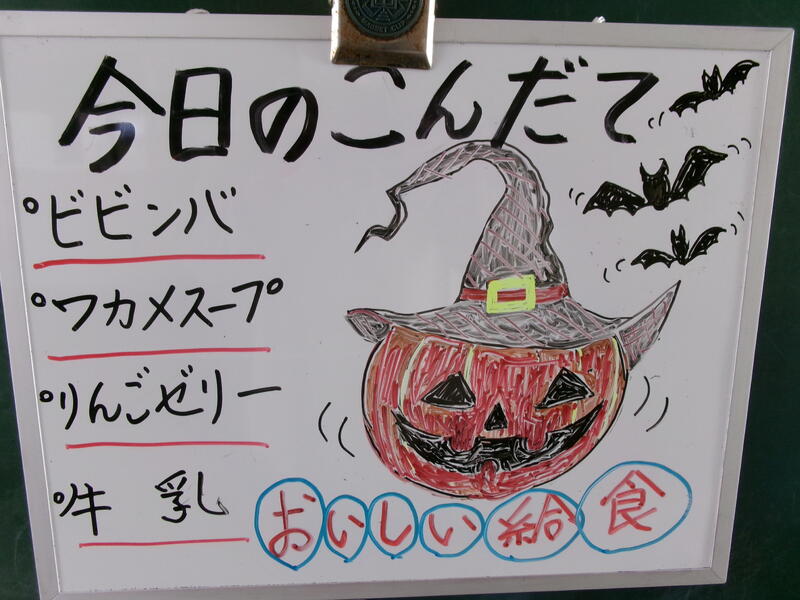 今日のこんだて
°ビビンバ
°ワカメスープ
°りんごゼリー
°牛 乳
おいしい給食